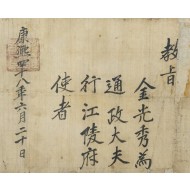 教旨
金光秀為
通政大夫
行江陵府
使者
康熙四十八年六月二十日